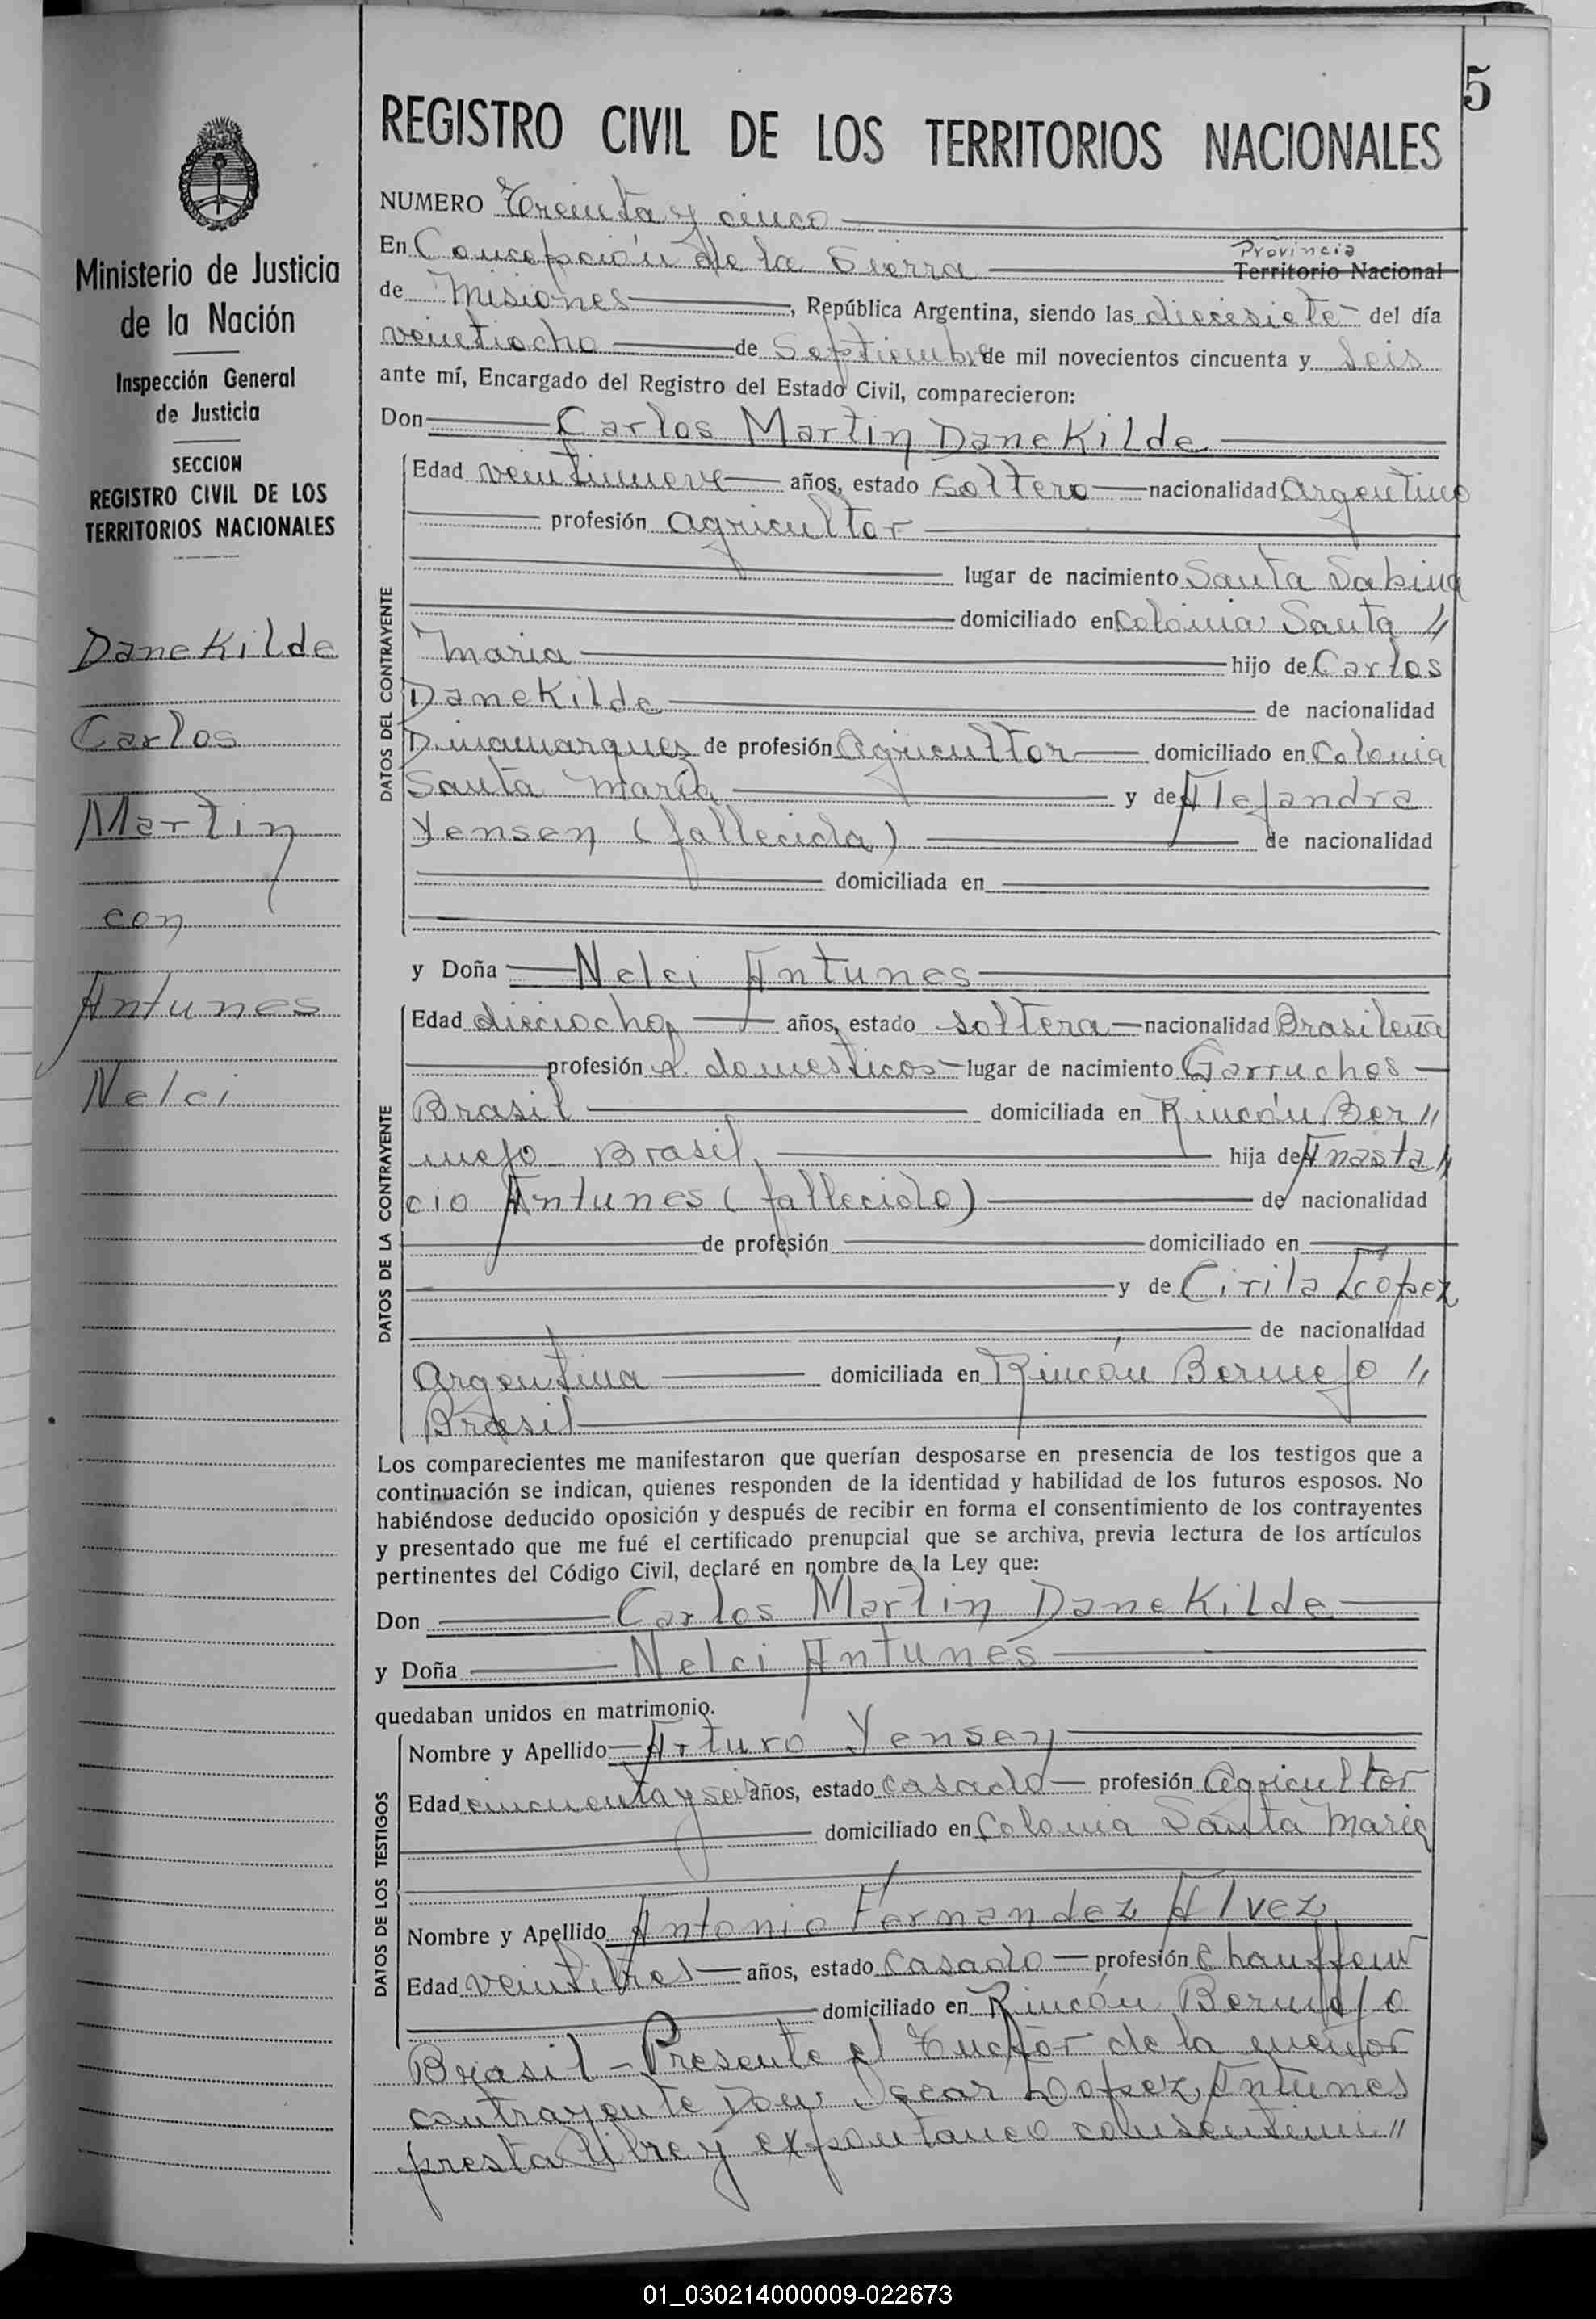 5
Ministerio de Justicia
de la Nación
Inspección General
de Justicia
SECCION
REGISTRO CIVIL DE LOS
TERRITORIOS NACIONALES
DaneKilde
Carlos
Martin
con
Antunes
Nelci
REGISTRO CIVIL DE LOS TERRITORIOS NACIONALES
NUMERO Treinta y cinco
Provincia
En Concepción de la Sierra Territorio Nacional
de Misiones, República Argentina, siendo las diecisiete del día
veintiocho de Septiembre de mil novecientos cincuenta y Seis
ante mí, Encargado del Registro del Estado Civil, comparecieron:
Don Carlos Martin DaneKilde
DATOS DEL CONTRAYENTE
Edad veintinueve años, estado soltero nacionalidad Argentino
profesión agricultor
lugar de nacimiento Santa Sabina
domiciliado en Colonia Santa "
Maria hijo de Carlos
DaneKilde de nacionalidad
Dinamarques de profesión Agricultor domiciliado en Colonia
Santa María y de Alejandra
Yensen (fallecida) de nacionalidad
domiciliada en
y Doña Nelci Antunes
DATOS DE LA CONTRAYENTE
Edad dieciocho años, estado soltera nacionalidad Brasileña
profesión q. domesticos lugar de nacimiento Garruchos
Brasil domiciliada en Rincón Ber "
mejo Brasil, hija de Anasta "
cio Antunes (fallecido) de nacionalidad
de profesión domiciliado en
y de Cirila López
de nacionalidad
Argentina domiciliada en Rincón Bermejo "
Brasil
Los comparecientes me manifestaron que querían desposarse en presencia de los testigos que a
continuación se indican, quienes responden de la identidad y habilidad de los futuros esposos. No
habiéndose deducido oposición y después de recibir en forma el consentimiento de los contrayentes
y presentado que me fué el certificado prenupcial que se archiva, previa lectura de los artículos
pertinentes del Código Civil, declaré en nombre de la Ley que:
Don Carlos Martin DaneKilde
y Doña Nelci Antunes
quedaban unidos en matrimonio.
DATOS DE LOS TESTIGOS
Nombre y Apellido Arturo Yensen
Edad cincuenta y seis años, estado casado profesión Agricultor
domiciliado en Colonia Santa Maria
Nombre y Apellido Antonio Fernandez Alvez
Edad veintitres años, estado casado profesión chauffeur
domiciliado en Rincón Bermejo
Brasil - Presente el Tuctor de la menor
contrayente Don Lopez Antunes
presta libre y expontaneo consentimi "
01_030214000009-022673